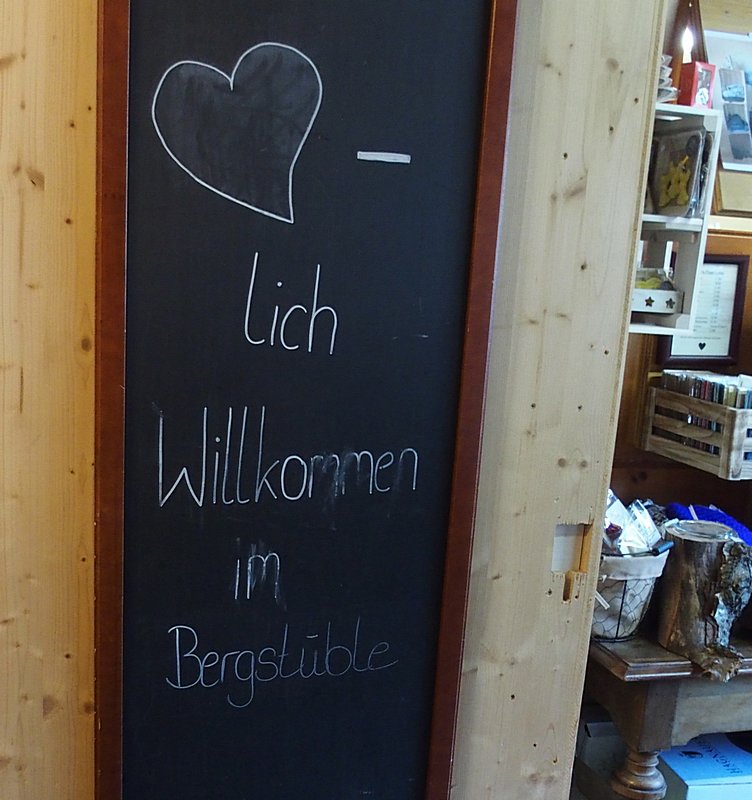 -
lich
Willkommen
im
Bergstüble